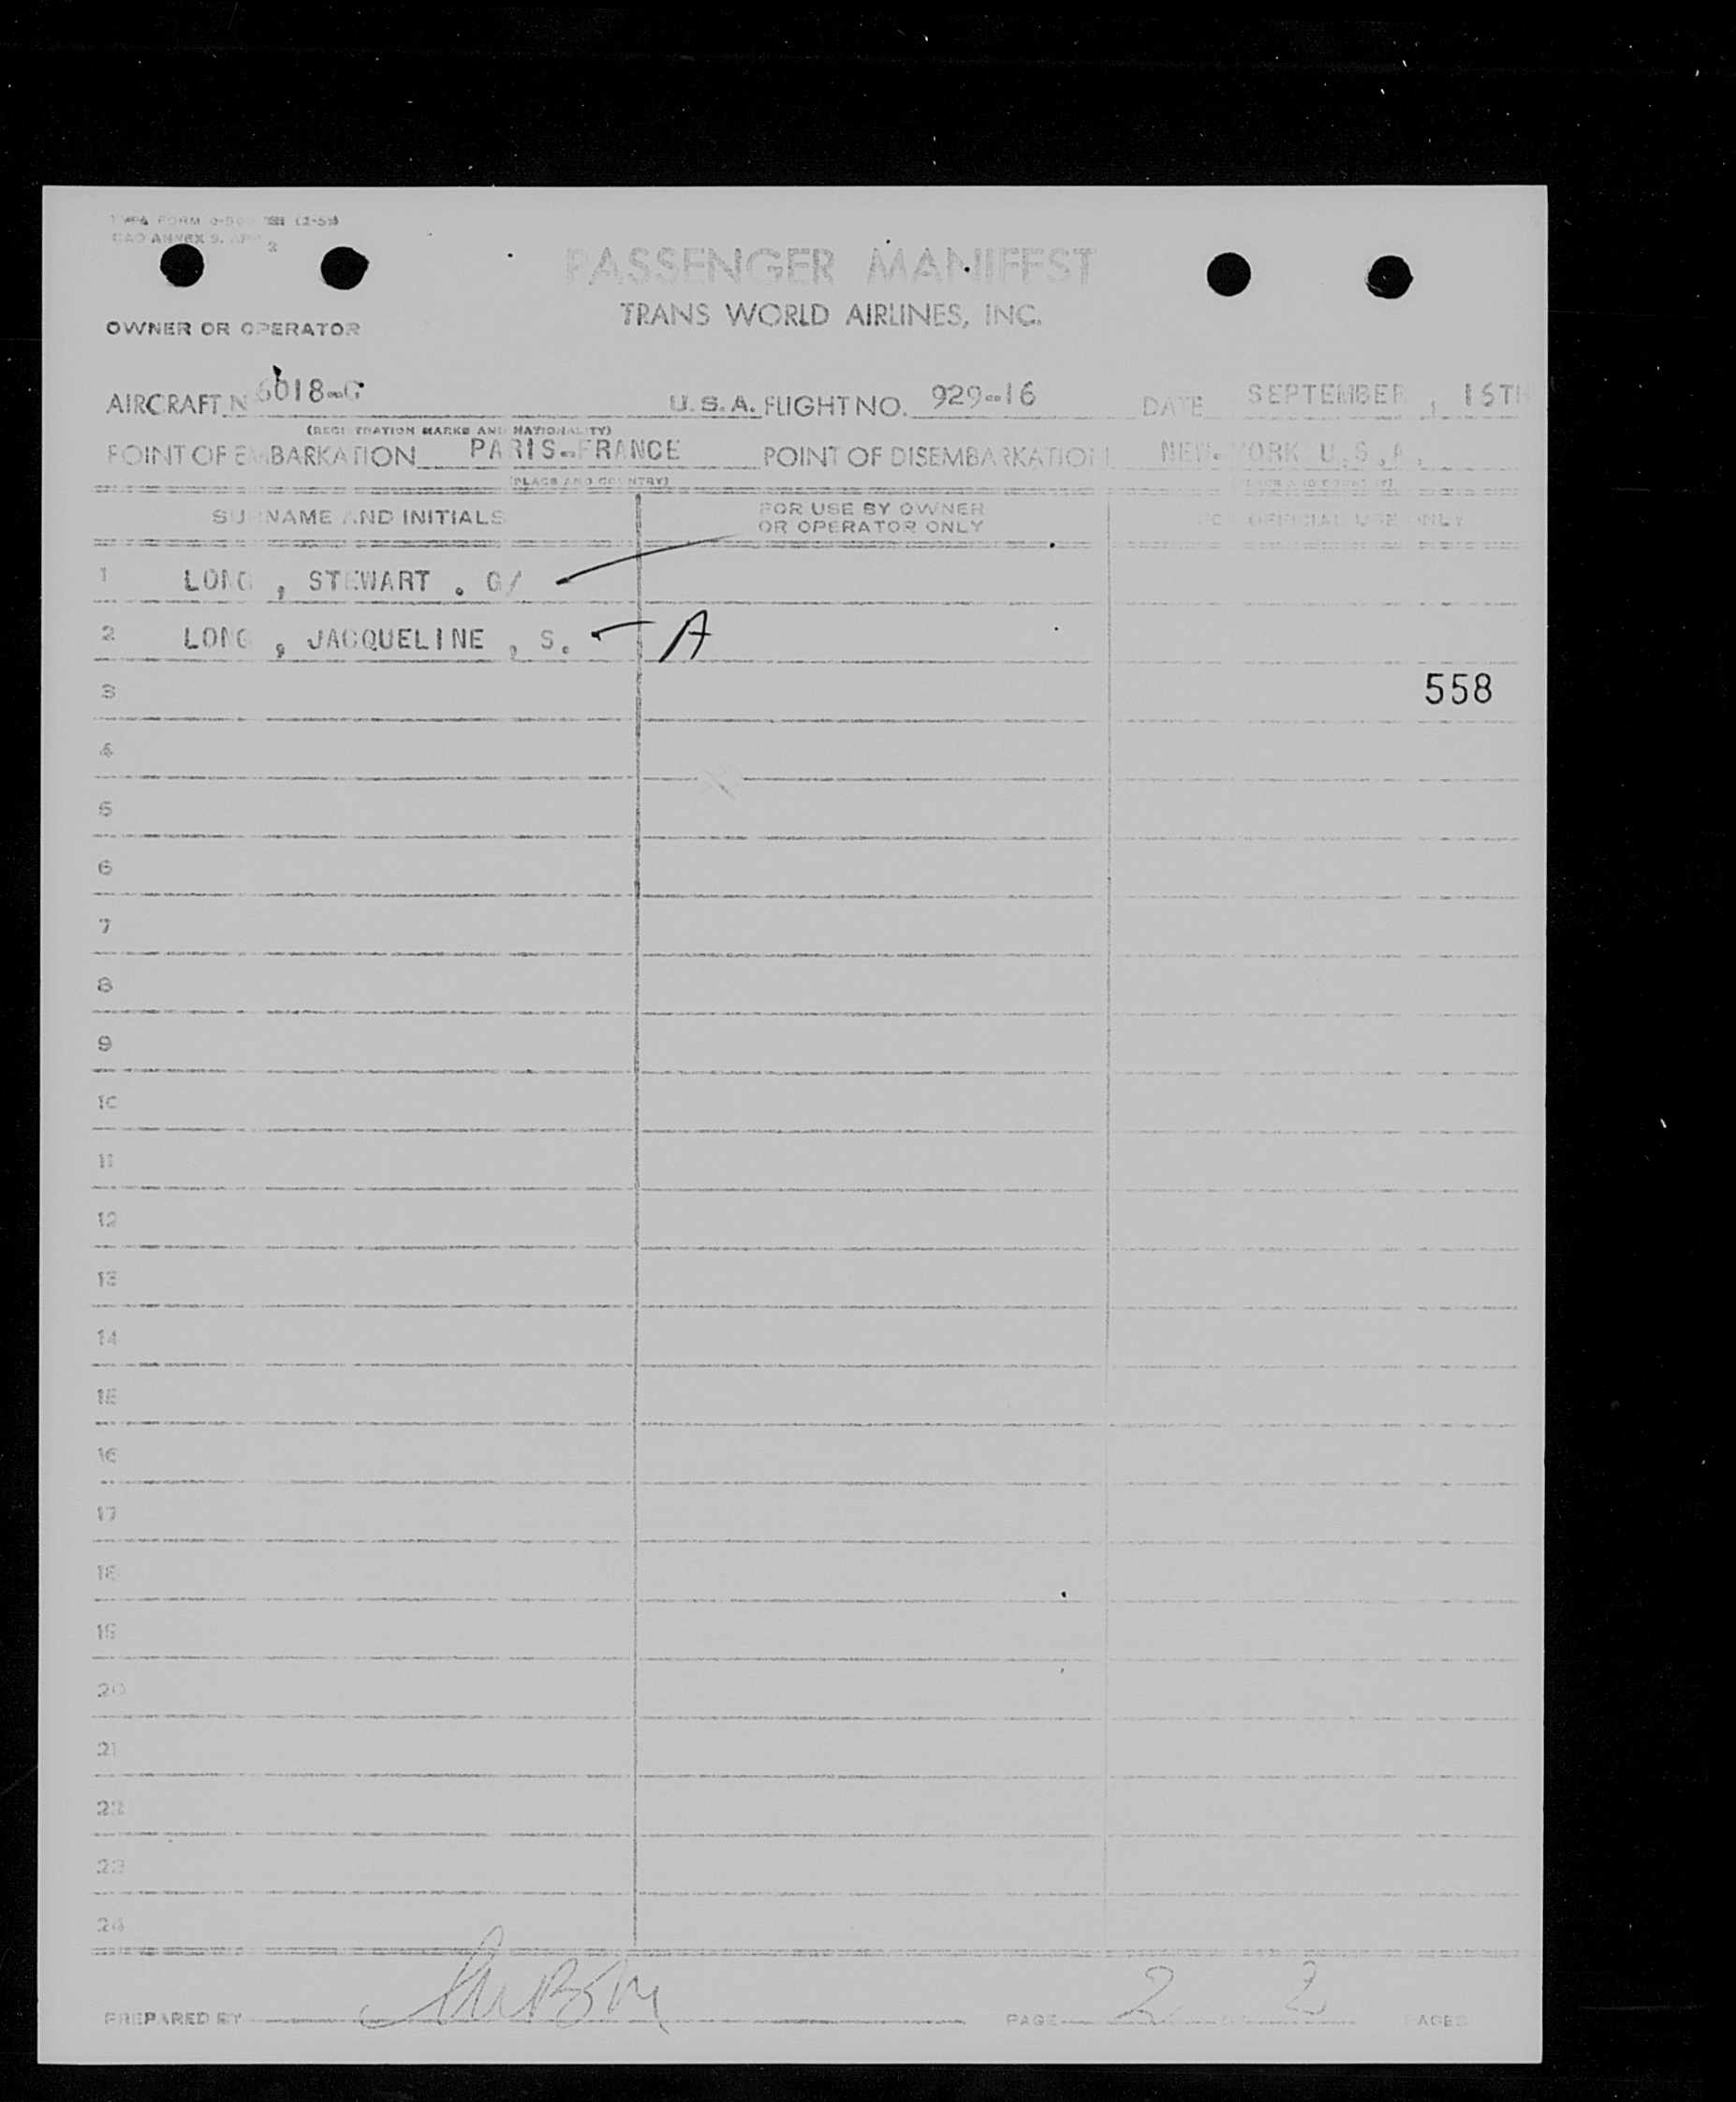 PASSENGER MANIFEST
TRANS WORLD AIRLINES, INC.
OWNER OR OPERATOR
AIRCRAFT N 6018-C U.S.A. FLIGHT NO. 929-16 DATE SEPTEMBER, 16TH
(REGISTRATION MARKS AND NATIONALITY)
POINT OF EMBARKATION PARIS-FRANCE POINT OF DISEMBARKATION NEW-YORK U.S.A.
(PLACE AND COUNTRY) (PLACE AND COUNTRY)
SURNAME AND INITIALS FOR USE BY OWNER OR OPERATOR ONLY FOR OFFICIAL USE ONLY
1 LONG , STEWART . G/
2 LONG , JACQUELINE , S. A
3 558
4
5
6
7
8
9
10
11
12
13
14
15
16
17
18
19
20
21
22
23
24
PREPARED BY PAGE 2 OF 2 PAGES